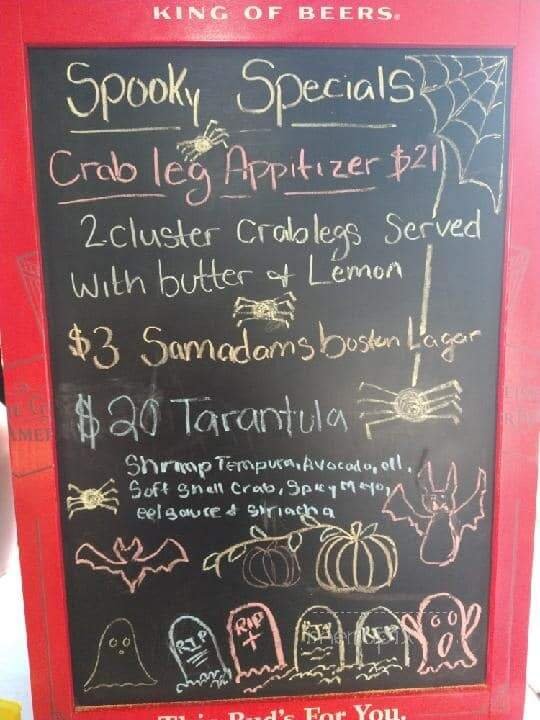 KING OF BEERS®
Spooky Specials
Crab leg Appitizer $21
2 cluster Crablegs Served
with butter & Lemon
$3 Samadams boston Lager
$20 Tarantula
Shrimp Tempura, Avocado, oll,
Soft Shell Crab, Spicy Mayo,
eel sauce & Siriacha
RIP
RIP
RIP
RIP
This Bud's For You.